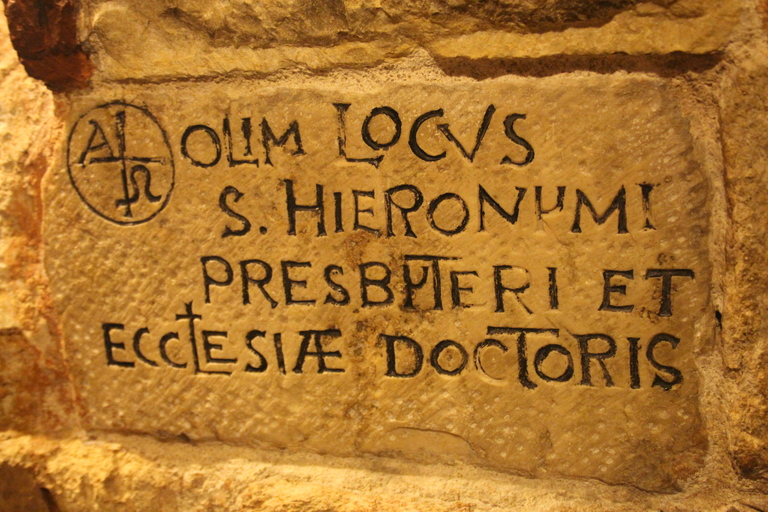 A Ω OLIM LOCVS
S. HIERONYMI
PRESBYTERI ET
ECCLESIÆ DOCTORIS